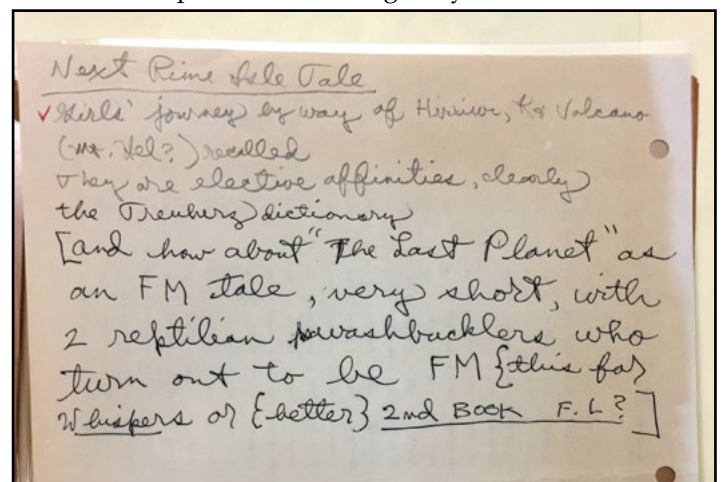 Next Rime Isle Tale
✓ Girls' journey by way of Hirriwi, K & Volcano
(Mt. Hel?) recalled
They are elective affinities, clearly
the Treuherz dictionary
[and how about "The Last Planet" as
an FM tale, very short, with
2 reptilian swashbucklers who
turn out to be FM {this for
Whispers or {better} 2nd BOOK F. L?]